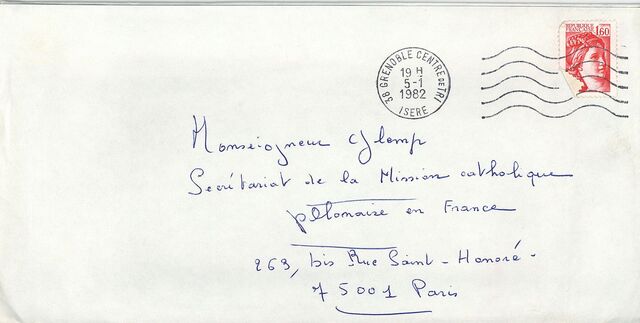 REPUBLIQUE FRANÇAISE
1,60
38 GRENOBLE CENTRE DE TRI
19 H
5-1
1982
ISERE
Monseigneur Glemp
Secrétariat de la Mission catholique
polonaise en France
263, bis Rue Saint-Honoré-
75001 Paris